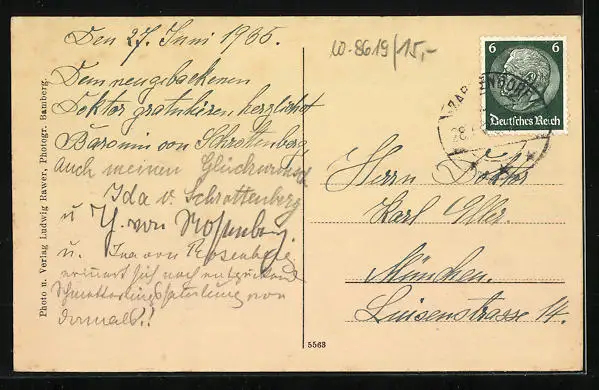 Den 27. Juni 1935.
Dem neugebackenen
Doktor gratulieren herzlichst
Baronin von Schrottenberg
auch meinen Glückwunsch
Ida v. Schrottenberg
u. Y. von Rosenberg.
u. Ina von Rosenberg
erinnert sich noch
Schmetterlingssammlung von
damals!!
Photo u. Verlag Ludwig Rawer, Photogr. Bamberg.
5563
W-8619/15,-
6 6
Deutsches Reich
Herrn Doktor
Karl Eller.
München.
Luisenstrasse 14.